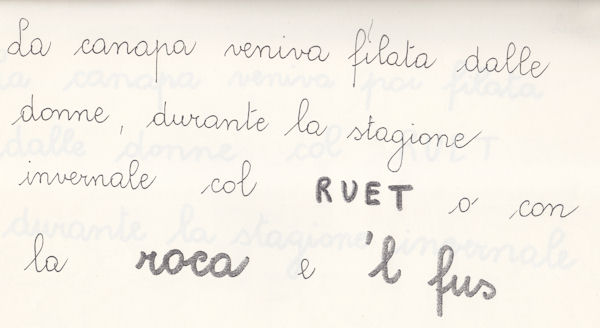 La canapa veniva filata dalle
donne, durante la stagione
invernale col RUET o con
la roca e 'l fus